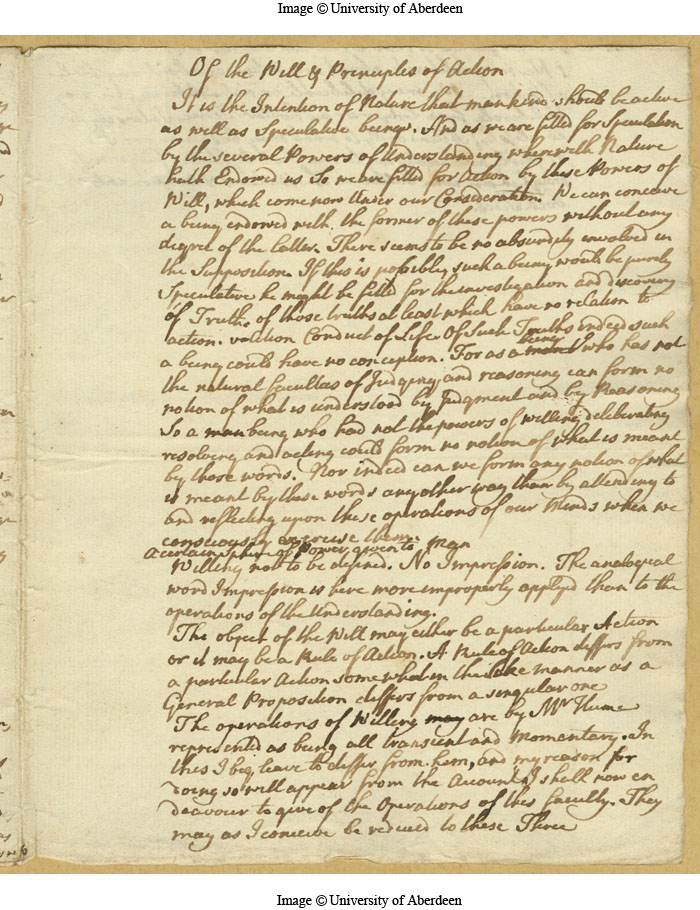 Image © University of Aberdeen
Of the Will & Principles of Action
It is the Intention of Nature that mankind should be active
as well as Speculative beings. And as we are fitted for Speculation
by the several Powers of Understanding wherewith Nature
hath Endowed us So we are fitted for Action by these Powers of
Will, which come now Under our Consideration. We can conceive
a being endowed with the former of these powers without any
degree of the latter. There seems to be no absurdity involved in
the Supposition. If this is possible, such a being would be purely
Speculative he might be fitted for the investigation and discovery
of Truth, of those truths at least which have no relation to
action. volition Conduct of Life. Of Such Truths indeed such
a being could have no conception. For as a being who has not
the natural faculties of Judging and reasoning can form no
notion of what is understood by Judgment and by Reasoning
So a man being who had not the powers of willing, deliberating
resolving and acting could form no notion of what is meant
by those words. Nor indeed can we form any notion of what
is meant by these words any other way than by attending to
and reflecting upon these operations of our Minds when we
consciously exercise them.
A certain Sphere of Power given to Man
Willing not to be defined. No Impression. The analogical
word Impression is here more improperly applyd than to the
operations of the Understanding.
The object of the Will may either be a particular Action
or it may be a Rule of Action. A Rule of Action differs from
a particular Action somewhat in the like manner as a
General Proposition differs from a singular one
The operations of Willing may are by Mr Hume
represented as being all transient and Momentary. In
this I beg leave to differ from him, and my reason for
doing so will appear from the Account I shall now en
deavour to give of the Operations of this faculty. They
may as I conceive be reduced to these Three
Image © University of Aberdeen